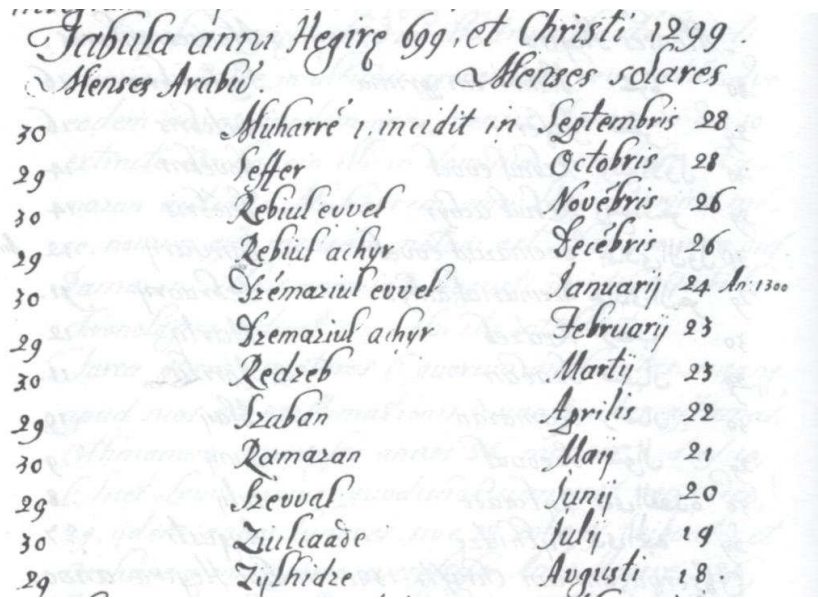 Tabula anni Hegirę 699, et Christi 1299.
Menses Arabū Menses solares
30 Muharrē 1, incidit in Septembris 28.
29 Seffer Octobris 28
30 Rebiul evvel Novēbris 26
29 Rebiul achyr Decēbris 26
30 Dzēmaziul evvel Januarij 24 An: 1300
29 Dzemaziul achyr Februarij 23
30 Redzeb Martij 23
29 Szaban Aprilis 22
30 Ramazan Maij 21
29 Szevval Junij 20
30 Zuilcaade July 19
29 Zylhidze Augusti 18.